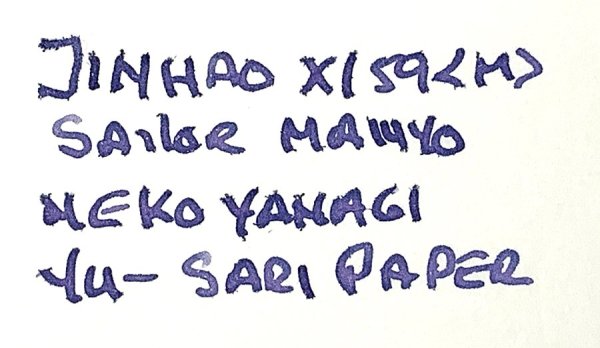 JINHAO X159<M>
SAilOR MANYO
NEKO YANAGI
YU- SARI PAPER